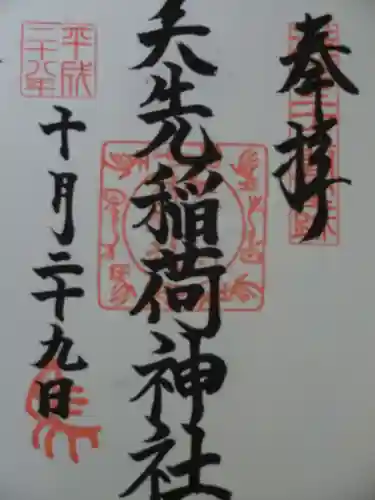 奉拝
矢先稲荷神社
平成
二十八年
十月二十九日